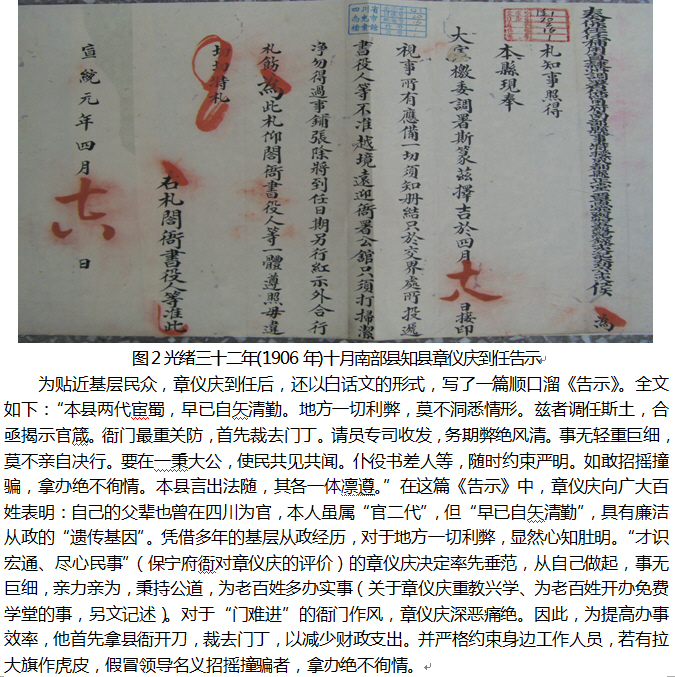 為
札知事照得
本縣現奉
大憲檄委調署斯篆茲擇吉於四月十八日接印
視事所有應備一切須知册結只於交界處所投遞
書役人等不准越境遠迎衙署公舘只須打掃潔
净勿得過事鋪張除將到任日期另行紅示外合行
札飭為此札仰閤衙書役人等一體遵照毋違
切切特札
右札閤衙書役人等准此
宣統元年四月十六日
图2光绪三十二年(1906 年)十月南部县知县章仪庆到任告示
为贴近基层民众，章仪庆到任后，还以白话文的形式，写了一篇顺口溜《告示》。全文
如下：“本县两代宦蜀，早已自矢清勤。地方一切利弊，莫不洞悉情形。兹者调任斯土，合
亟揭示官箴。衙门最重关防，首先裁去门丁。请员专司收发，务期弊绝风清。事无轻重巨细，
莫不亲自决行。要在一秉大公，使民共见共闻。仆役书差人等，随时约束严明。如敢招摇撞
骗，拿办绝不徇情。本县言出法随，其各一体凛遵。”在这篇《告示》中，章仪庆向广大百
姓表明：自己的父辈也曾在四川为官，本人虽属“官二代”，但“早已自矢清勤”，具有廉洁
从政的“遗传基因”。凭借多年的基层从政经历，对于地方一切利弊，显然心知肚明。“才识
宏通、尽心民事”（保宁府衙对章仪庆的评价）的章仪庆决定率先垂范，从自己做起，事无
巨细，亲力亲为，秉持公道，为老百姓多办实事（关于章仪庆重教兴学、为老百姓开办免费
学堂的事，另文记述）。对于“门难进”的衙门作风，章仪庆深恶痛绝。因此，为提高办事
效率，他首先拿县衙开刀，裁去门丁，以减少财政支出。并严格约束身边工作人员，若有拉
大旗作虎皮，假冒领导名义招摇撞骗者，拿办绝不徇情。